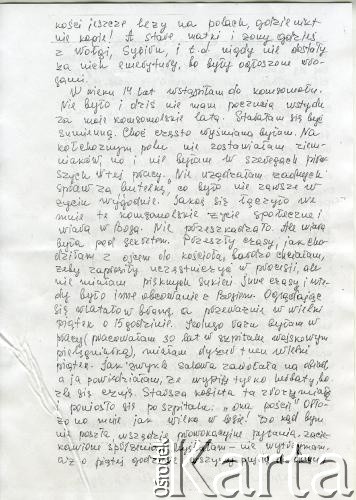 kości jeszcze leży na polach, gdzie nikt
nie kopie! A stare matki i żony gdzieś
z Wołgi, Sybiru, i t.d nigdy nie dostały
za nich emerytury, bo były ogłoszone wro-
gami.
W wieku 14 lat wstąpiłam do komsomołu.
Nie było i dziś nie mam poczucia wstydu
za moje komsomolskie lata. Starałam się być
sumienną. Choć często wyśmianą byłam. Na
kołchoznym polu nie zostawiałam ziem-
niaków, no i nie byłam w szeregach pierw-
szych w tej pracy. Nie urządzałam żadnych
spraw za butelkę, co było nie zawsze w
życiu wygodnie. Jakoś się łączyło we
mnie te komsomolskie życie społeczne i
wiara w Boga. Nie przeszkadzało. Ale wiara
była pod sekretem. Przeszły czasy, jak cho-
dziłam z ojcem do kościoła, bardzo chciałam,
żeby zaprosili uczestniczyć w procesji, ale
nie miałam pięknych sukien. Inne czasy i wte-
dy było inne obcowanie z Bogiem. Oglądając
się wlatało w bramę, a przeważnie w wielki
piątek o 15 godzinie. Jednego razu byłam w
pracy (pracowałam 30 lat w szpitalu wojskowym
pielęgniarką), miałam dyżur tu w wielki
piątek. Jak zwykle salowa zawołała na obiad
a ja powiedziałam, że wypiję tylko herbaty, bo
źle się czuję. Starsza kobieta ta zrozumiała
i poniosło się po szpitalu: "ona pości" Oto-
czono mnie jak wilka w lesie! Do kąd bym
nie poszła wszędzie prowokacyjne pytania, zacie-
kawione spojrzenia. Myślałam - nie wytrzymam,
aż o piątej godzinie
ośrodek
Karta